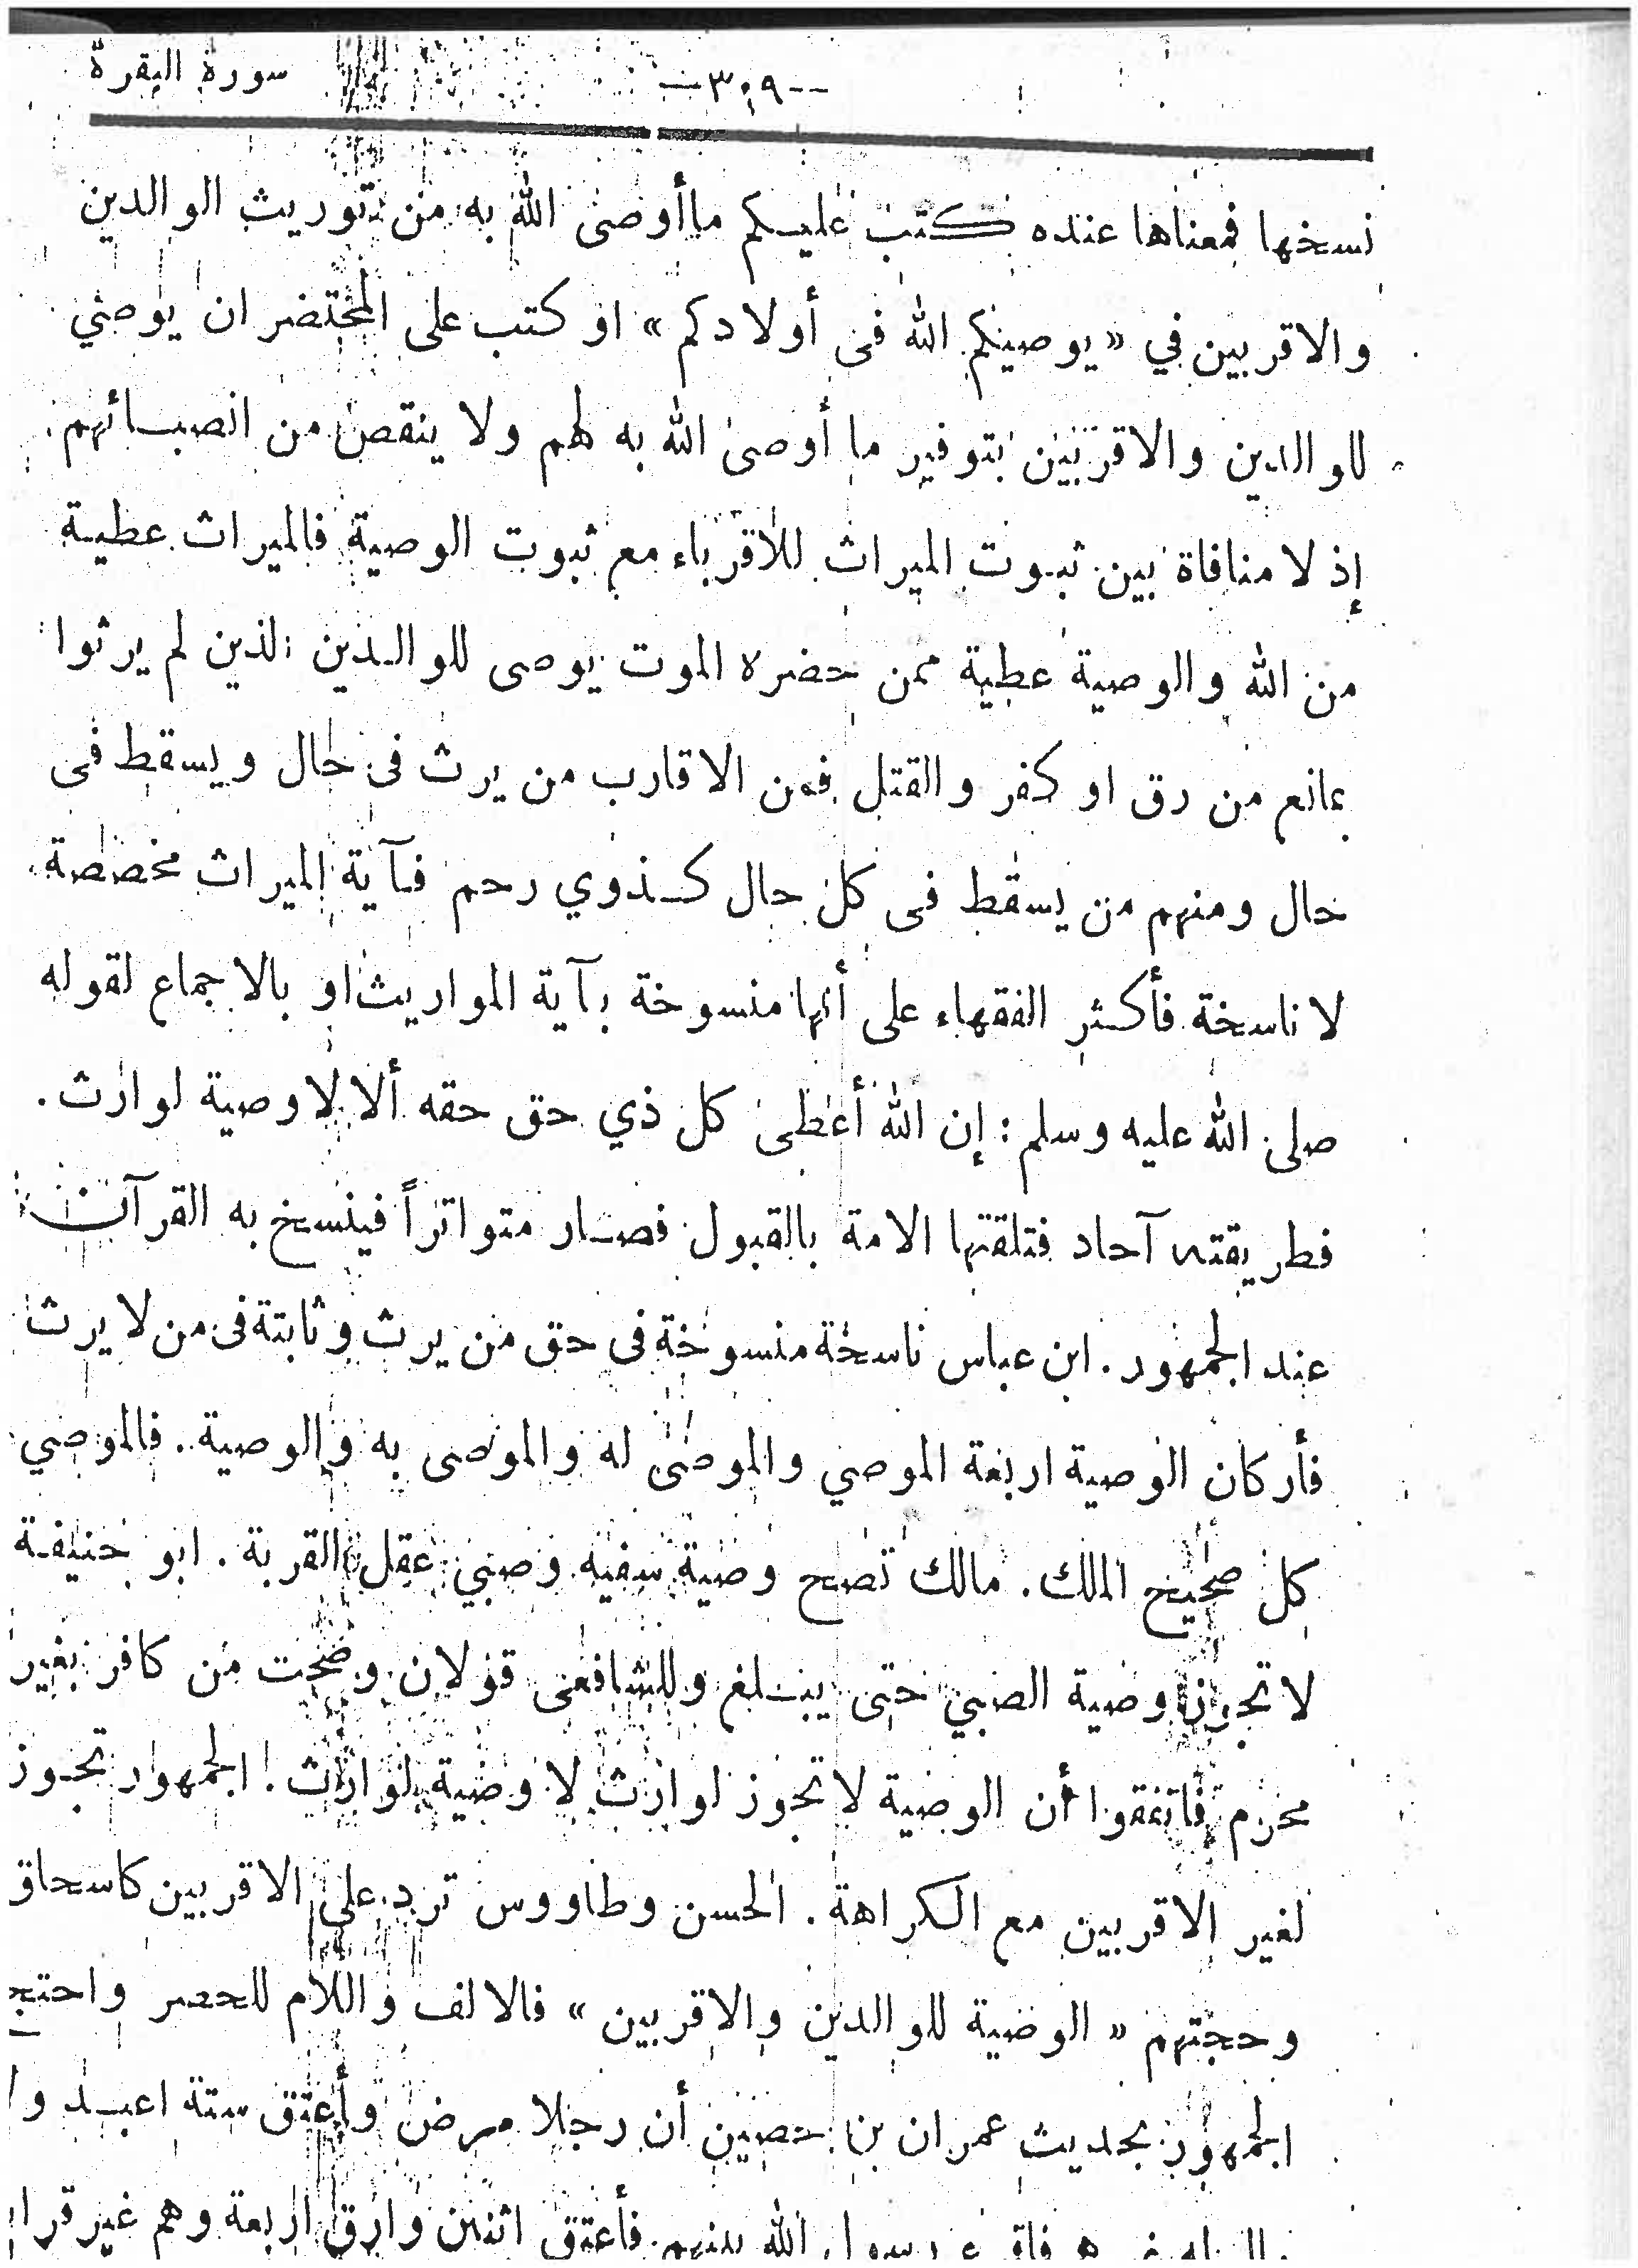 سورة البقرة
-- ٣٠٩ --
نسخها فمعناها عنده كتب عليكم ما أوصى الله به من توريث الوالدين
والاقربين في « يوصيكم الله فى أولادكم » او كتب على المحتضر ان يوصي
للوالدين والاقربين بتوفير ما أوصى الله به لهم ولا ينقص من انصبائهم
إذ لا منافاة بين ثبوت الميراث للاقرباء مع ثبوت الوصية فالميراث عطية
من الله والوصية عطية ممن حضره الموت يوصى للوالدين الذين لم يرثوا
بمانع من رق او كفر والقتل فمن الاقارب من يرث فى حال ويسقط فى
حال ومنهم من يسقط فى كل حال كذوي رحم فآية الميراث مخصصة
لا ناسخة فأكثر الفقهاء على أنها منسوخة بآية المواريث او بالاجماع لقوله
صلى الله عليه وسلم : إن الله أعطى كل ذي حق حقه ألا لا وصية لوارث .
فطريقته آحاد فتلقتها الامة بالقبول فصار متواتراً فينسخ به القرآن
عند الجمهور . ابن عباس ناسخة منسوخة فى حق من يرث وثابتة فى من لا يرث
فأركان الوصية اربعة الموصي والموصى له والموصى به والوصية . فالموصي
كل صحيح الملك . مالك تصح وصية سفيه وصبي عقل القربة . ابو حنيفة
لا تجوز وصية الصبي حتى يبلغ وللشافعى قولان وصحت من كافر بغير
محرم فاتفقوا أن الوصية لا تجوز لوارث لا وصية لوارث . الجمهور تجوز
لغير الاقربين مع الكراهة . الحسن وطاووس ترد على الاقربين كاسحاق
وحجتهم « الوصية للوالدين والاقربين » فالالف واللام للحصر واحتج
الجمهور بحديث عمران بن حصين أن رجلا مرض وأعتق ستة اعبد
رسول الله بينهم فأعتق اثنين وارق اربعة وهم غير